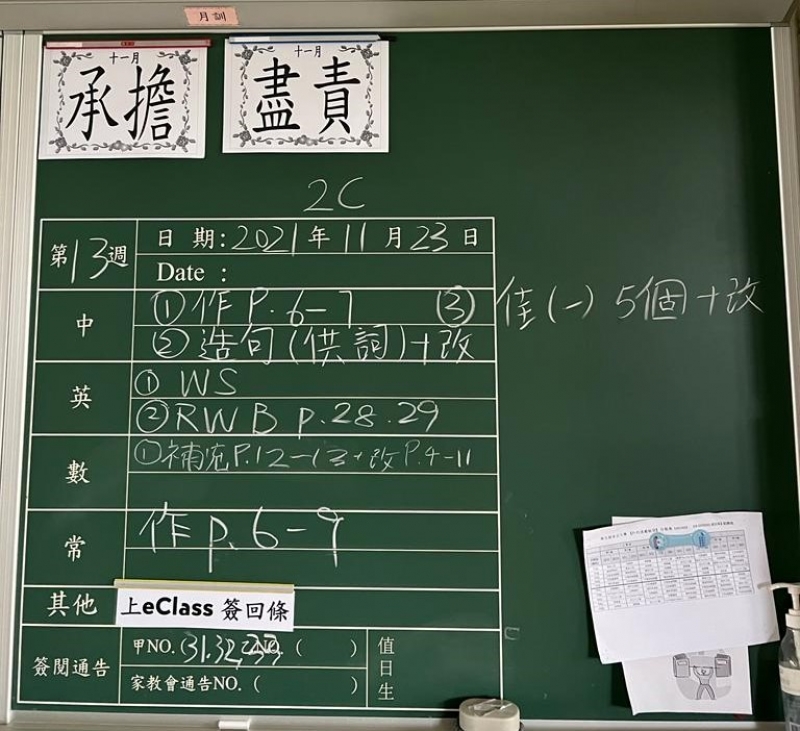 月訓
十一月
承擔
十一月
盡責
2C
第13週
日 期:2021年11月23日
Date :
中
①作P.6-7 ③ 佳(一) 5個+改
②造句(供詞)+改
英
① WS
②RWB p.28.29
數
①補充P.12-13+改P.4-11
常
作p.6-9
其他
上eClass 簽回條
簽閱通告
甲NO.(31.32,33 ( )
家教會通告NO.( )
值日生